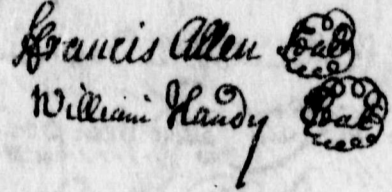 Francis Allen Seal
William Handy Seal